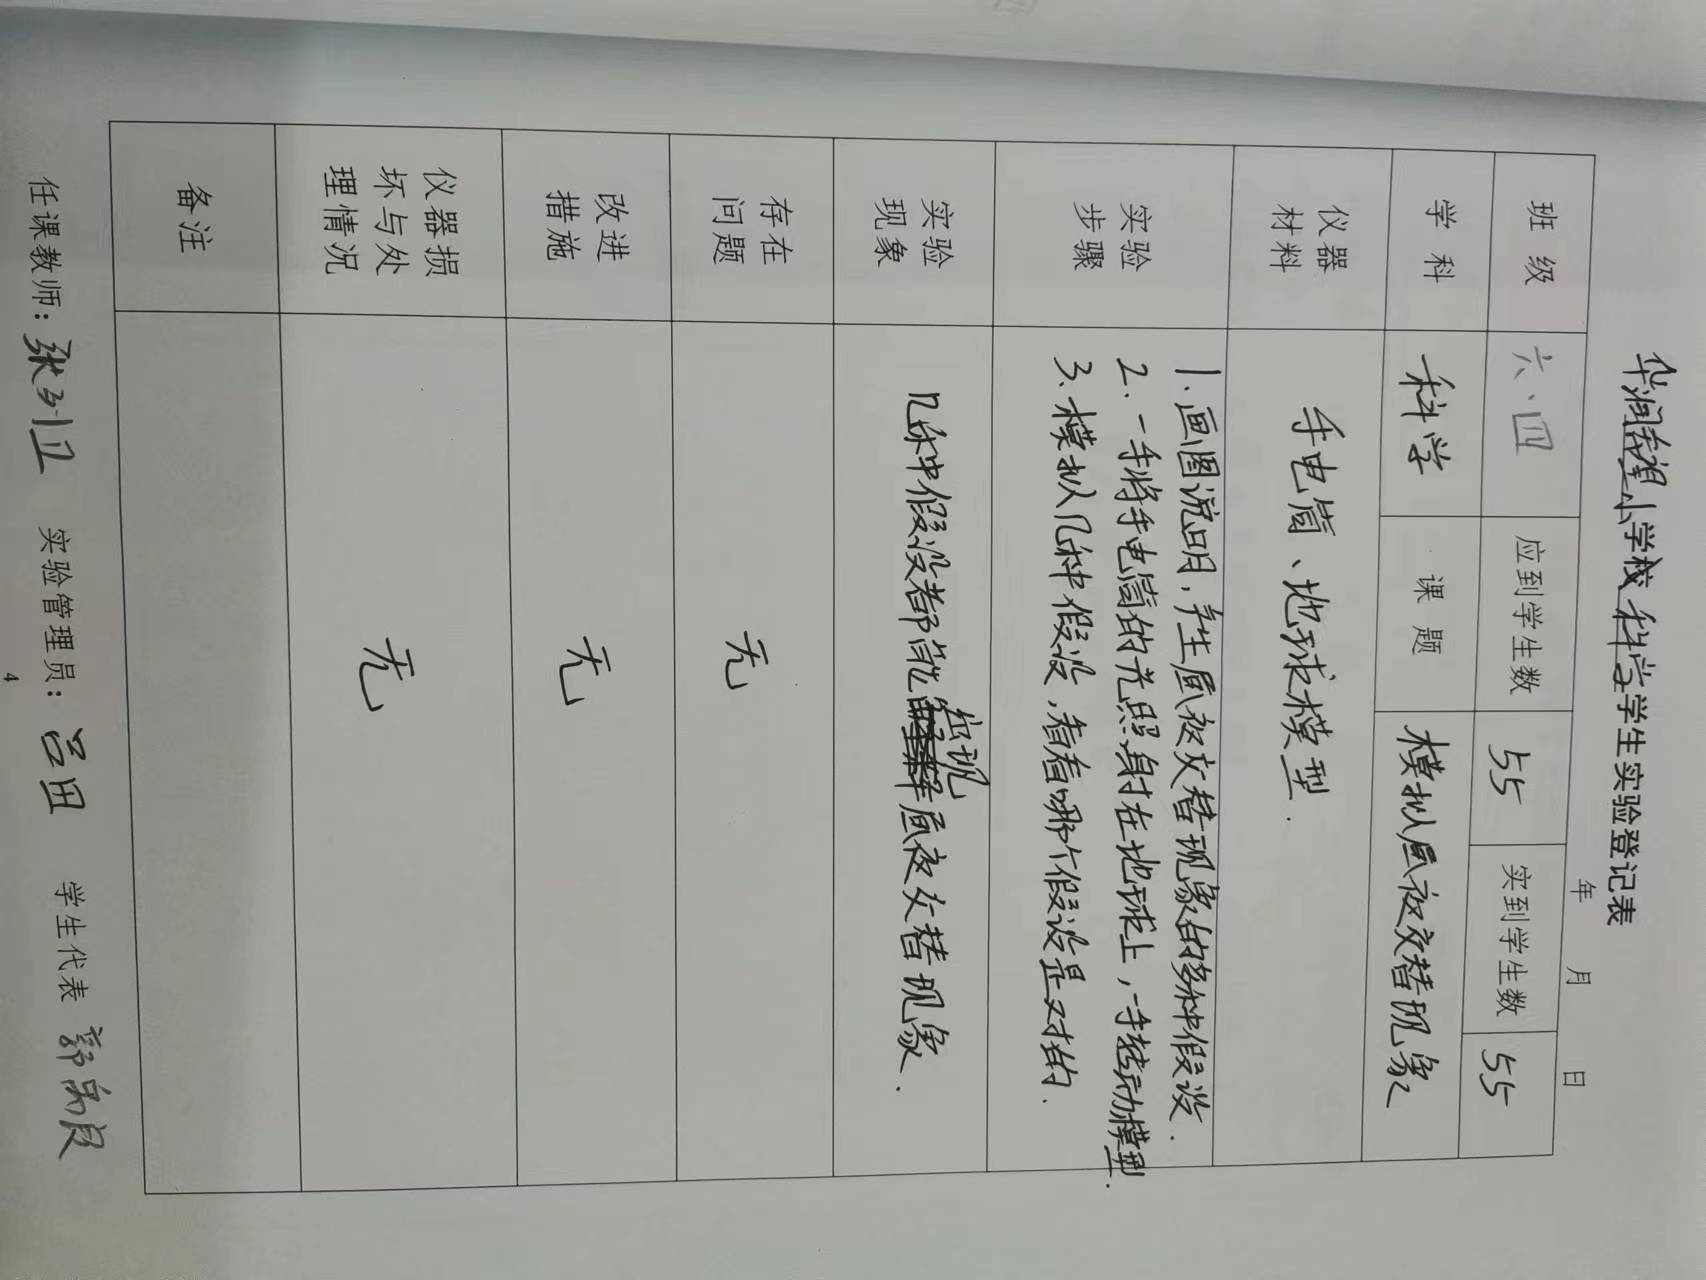 华润希望小学校 科学 学生实验登记表
年 月 日
班 级 六、四 应到学生数 55 实到学生数 55
学 科 科学 课 题 模拟昼夜交替现象
仪器
材料
手电筒、地球模型.
实验
步骤
1.画图说明,产生昼夜交替现象的多种假设.
2.一手将手电筒的光照射在地球上,一手转动模型.
3.模拟几种假设,看看哪个假设是对的.
实验
现象
出现
几种假设都能昼夜交替现象.
存在
问题
无
改进
措施
无
仪器损
坏与处
理情况
无
备注
任课教师: 实验管理员: 吕田 学生代表
4